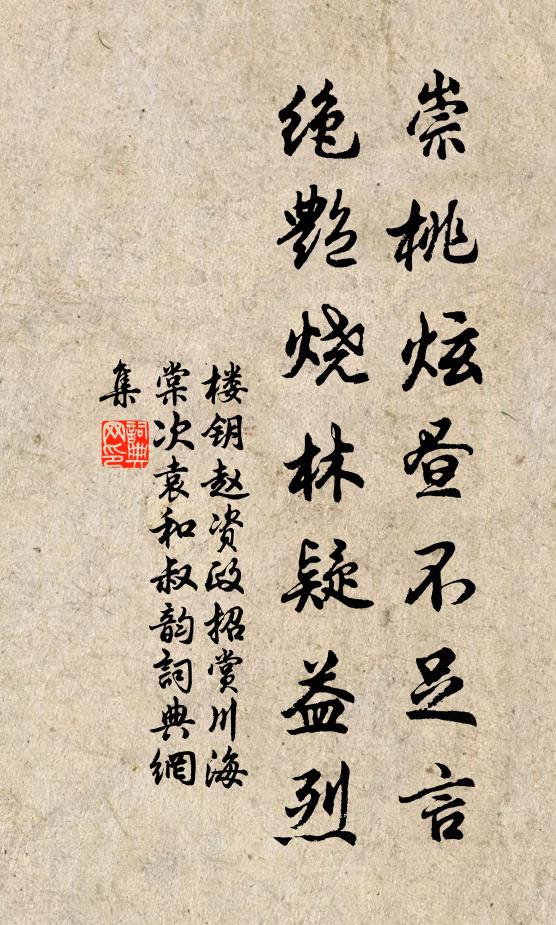 崇桃炫昼不足言
绝艳烧林疑益烈
楼钥赵资政招赏川海
棠次袁和叔韵詞典網
集
詞典
网印